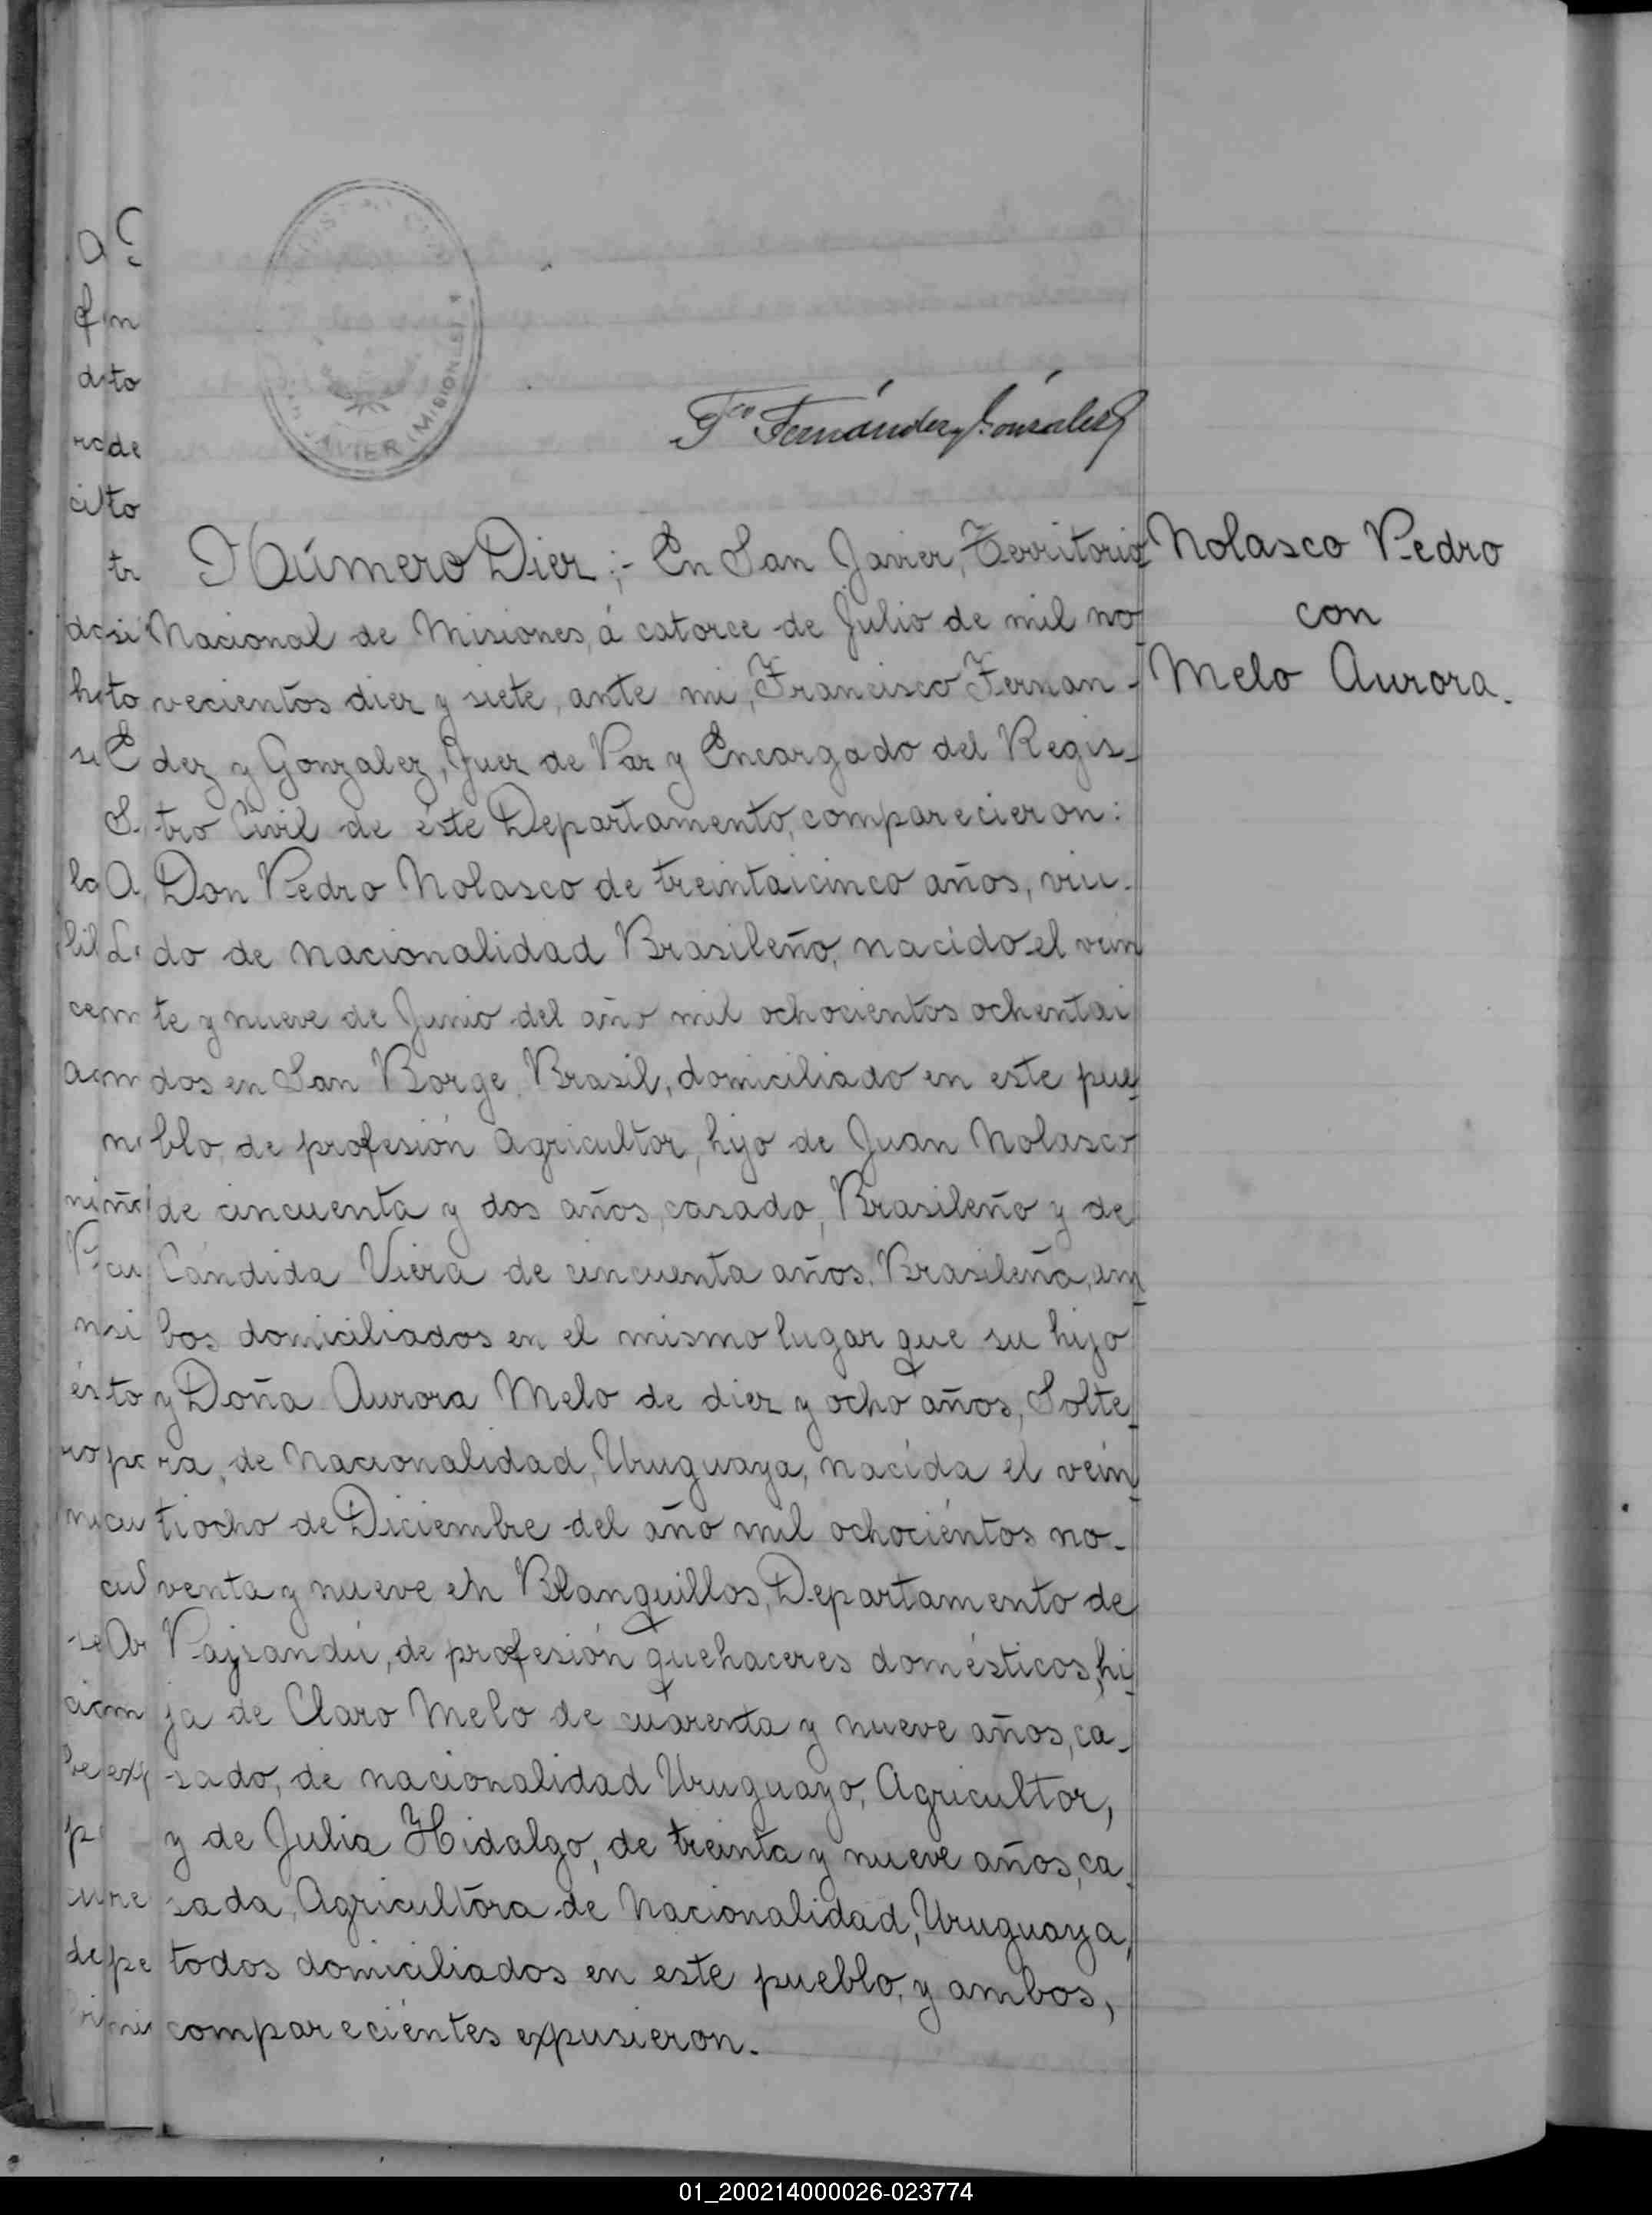 JAVIER (MISIONES)
Fco Fernández y González
Número Diez;- En San Javier, Territorio
Nacional de Misiones, á catorce de Julio de mil no
vecientos diez y siete, ante mi, Francisco Fernan-
dez y Gonzalez, Juez de Paz y Encargado del Regis-
tro Civil de éste Departamento, comparecieron:
Don Pedro Nolasco de treintaicinco años, viu-
do de nacionalidad Brasileño, nacído el vein
te y nueve de Junio del año mil ochocientos ochentai
dos en San Borge, Brasil, domiciliado en este pue-
blo, de profesión agricultor, hijo de Juan Nolasco
de cincuenta y dos años, casado, Brasileño y de
Cándida Viera de cincuenta años, Brasileña, am-
bos domiciliados en el mismo lugar que su hijo
y Doña Aurora Melo de diez y ocho años, Solte-
ra, de Nacionalidad, Uruguaya, nacída el vein-
tiocho de Diciembre del año mil ochociéntos no-
venta y nueve en Blanquillos, Departamento de
Paysandú, de profesión quehaceres domésticos, hi-
ja de Claro Melo de cuarenta y nueve años, ca-
sado, de nacionalidad Uruguayo, Agricultor,
y de Julia Hidalgo, de treinta y nueve años, ca-
sada, Agricultora de Nacionalidad, Uruguaya,
todos domiciliados en este pueblo, y ambos,
compareciéntes expusieron.
Nolasco Pedro
con
Melo Aurora.
01_200214000026-023774